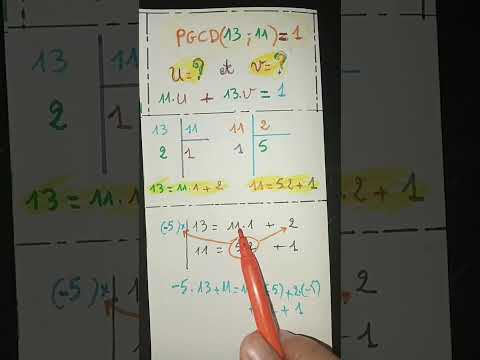 PGCD(13;11)=1
u=? et v=?
11.u + 13.v = 1
13 | 11
2 | 1
11 | 2
1 | 5
13 = 11.1 + 2
11 = 5.2 + 1
(-5)× | 13 = 11.1 + 2
11 = 5.2 + 1
-5.13+11=1 (-5)+2.(-5)
+ 1
13
2